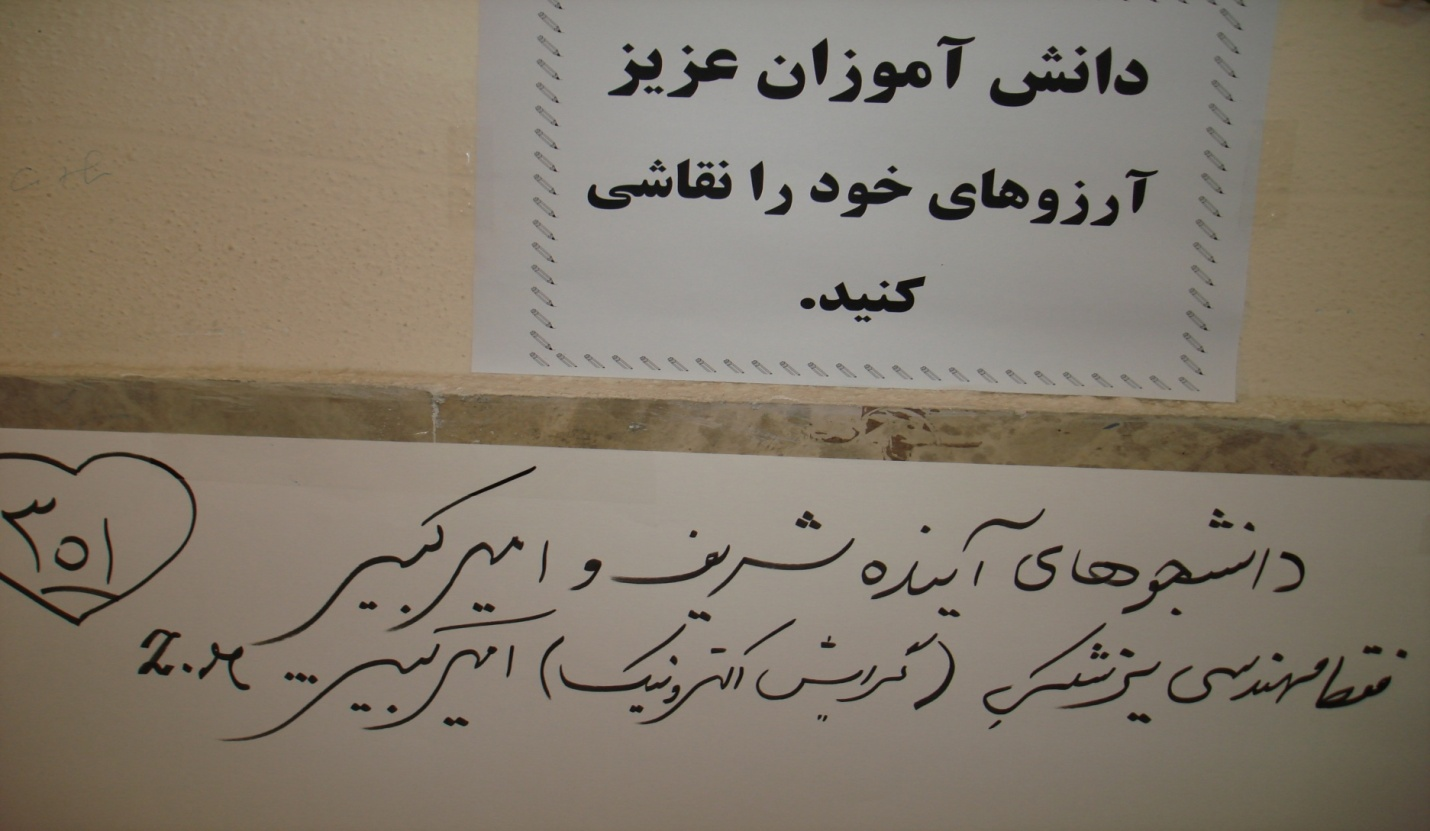 دانش آموزان عزیز
آرزوهای خود را نقاشی
کنید.
دانشجوهای آینده شریف و امیرکبیر
فقط مهندسی پزشکی (گرایش الکترونیک) امیرکبیر...
۳۵۱